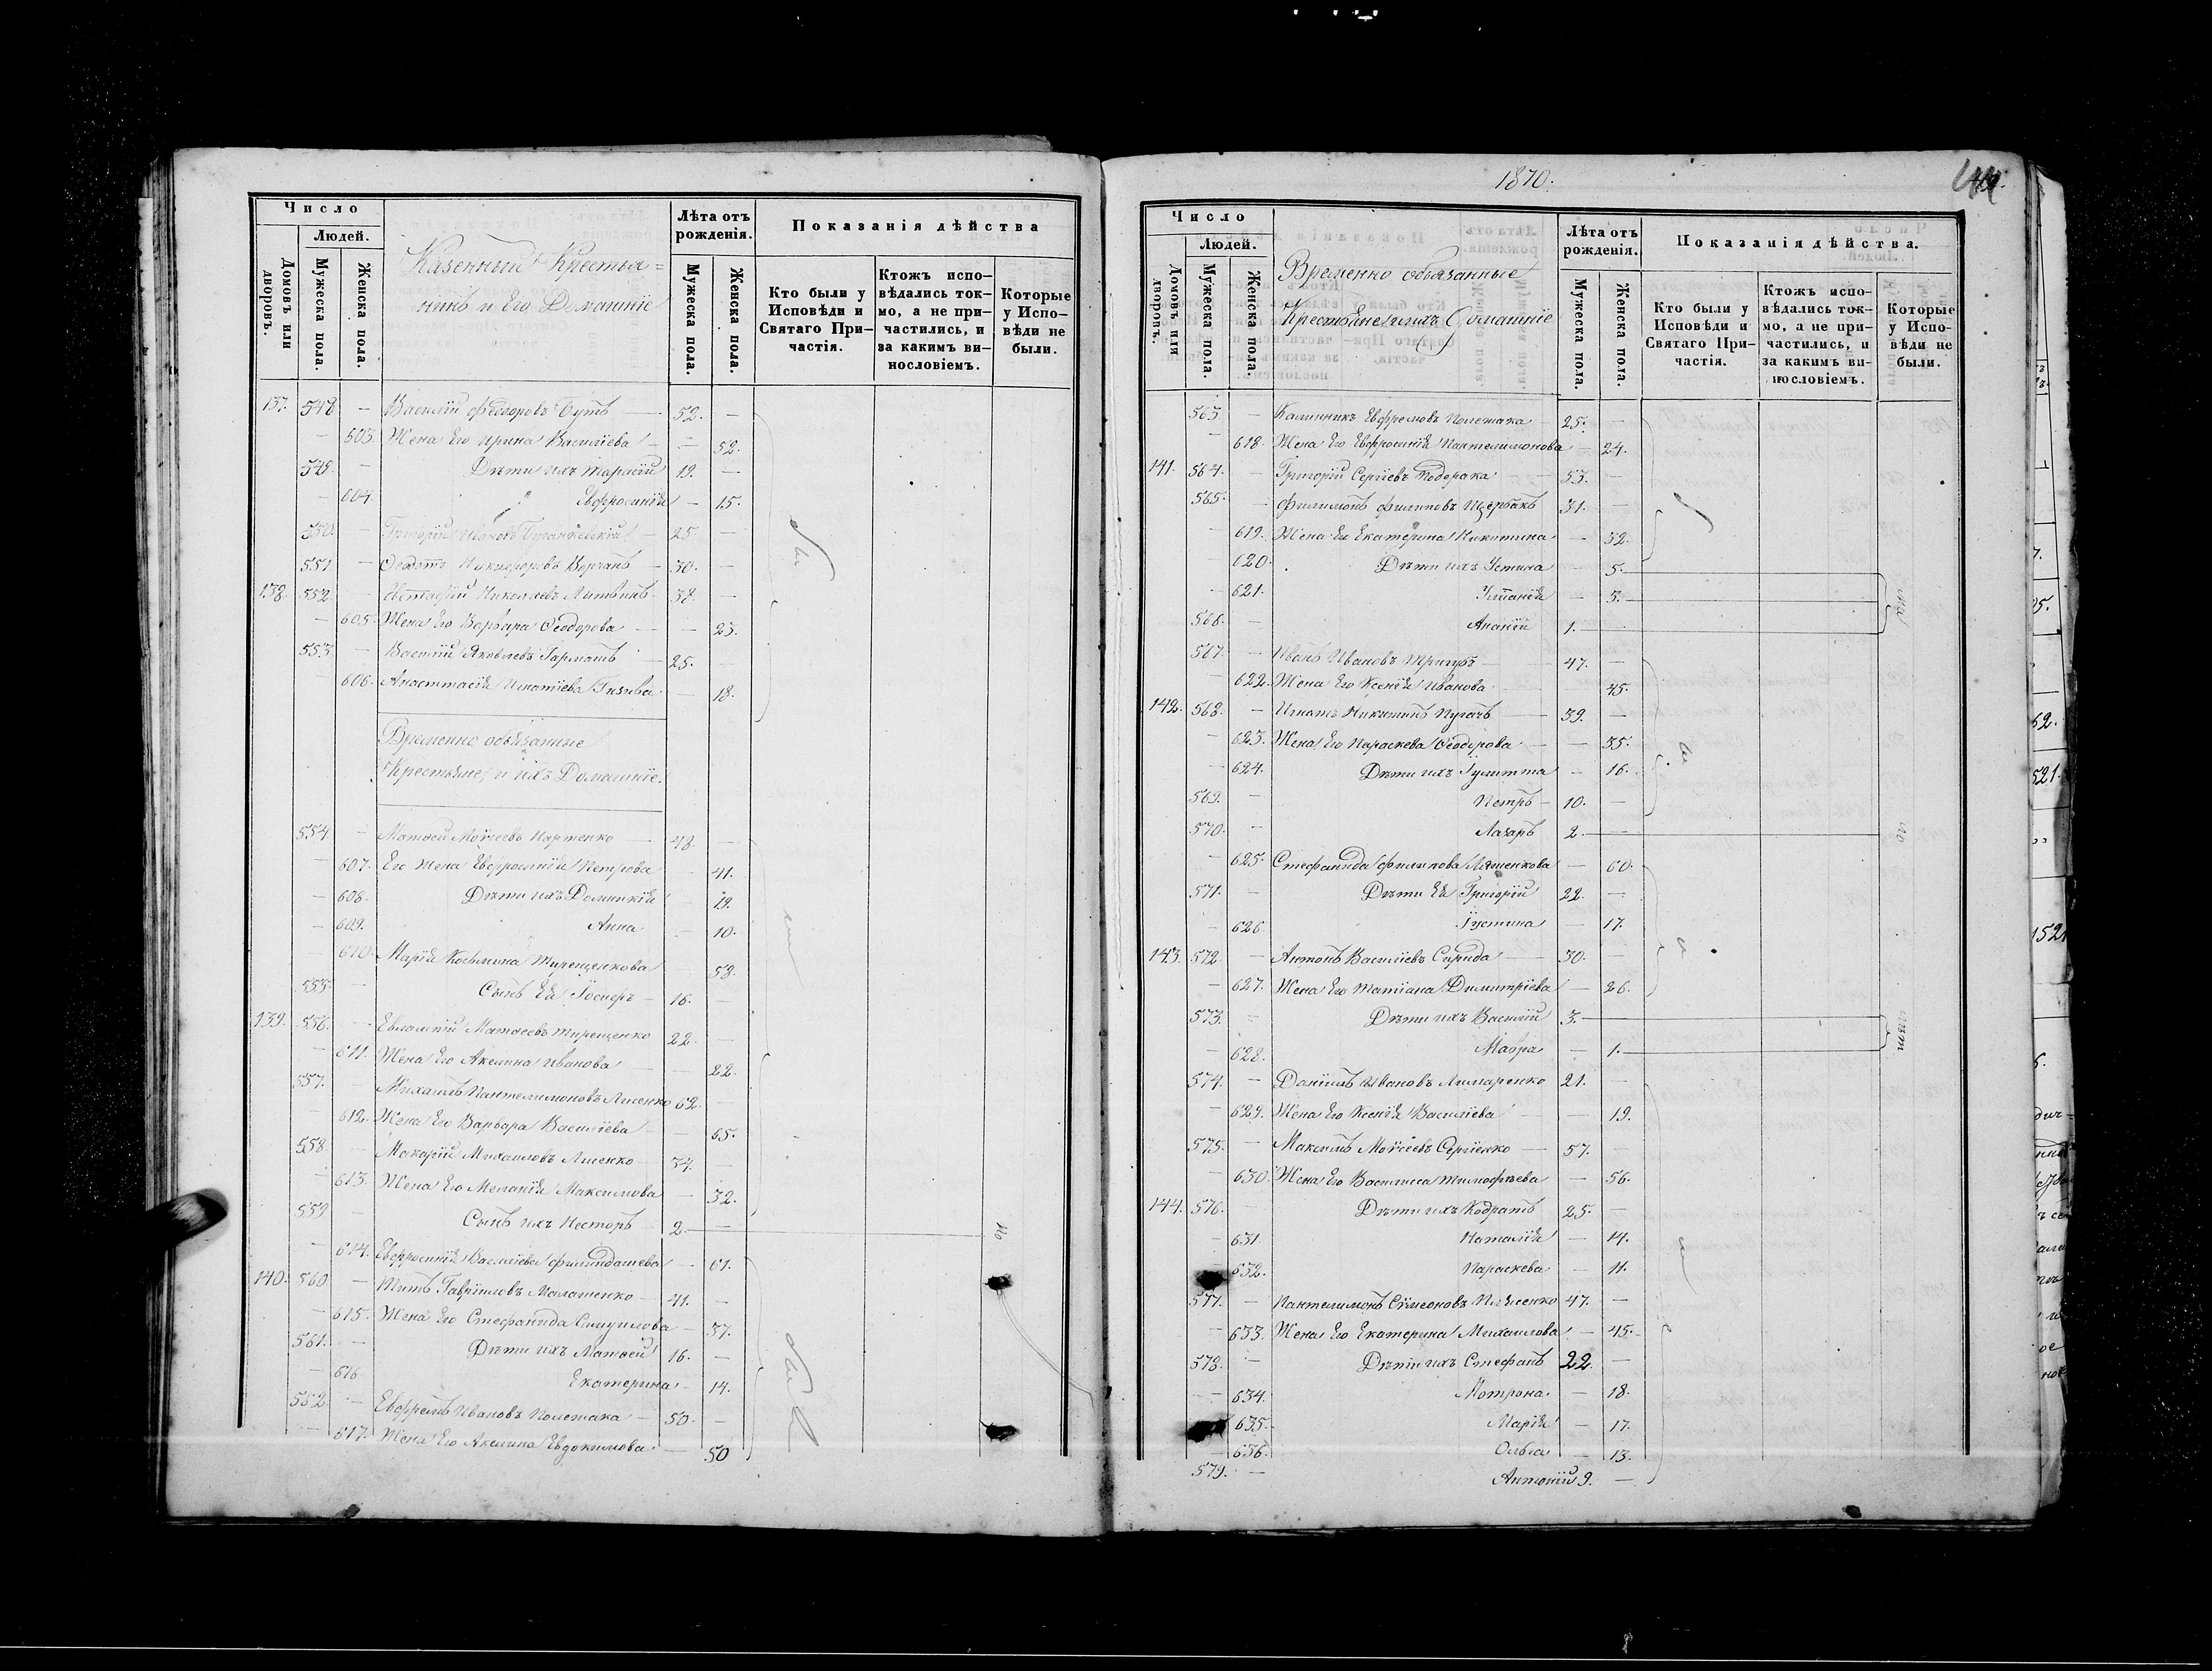 Число
Людей.
Домовъ или дворовъ.
Мужеска пола.
Женска пола.
Казенный Крестья=
нинъ и Его Домашніе
Лѣта отъ рожденія.
Мужеска пола.
Женска пола.
Показанія дѣйства
Кто были у Исповѣди и Святаго Причастія.
Ктожъ исповѣдались токмо, а не причастились, и за какимъ винословіемъ.
Которые у Исповѣди не были.
137. 548 — Василій Ѳеодоровъ Бутъ — 52. —
— 603. Жена Его Ирина Василіева — 52.
549. — Дѣти ихъ Тарасій 19. —
— 604 " Евфросинія — 15.
550. — Григорій Ивановъ 25 —
551 — Ѳеодотъ Никифоровъ — 30. —
138. 552 — Евстафій Николаевъ Литвинъ 38. —
— 605. Жена Его Варвара Ѳеодорова — 23.
553 — Василій Яковлевъ Гарматъ 25. —
— 606. Анастасія Игнатіева — 18.
Временно обязанные
Крестьяне и ихъ Домашніе.
554 — Матѳей Моѵсеевъ Партенко 48. —
— 607. Его Жена Евфросинія Петрова — 41.
— 608. Дѣти ихъ Домникія — 19.
— 609. Анна — 10.
— 610 Марія Косьмина Тирещенкова — 58.
555. — Сынъ Ея Іосифъ 16. —
139. 556. — Евлампій Матѳеевъ Тирещенко 22. —
— 611. Жена Его Акелина Иванова — 22.
557. — Михаилъ Пантелимоновъ Лисенко 62. —
— 612. Жена Его Варвара Василіева — 65.
558. — Макарій Михаиловъ Лисенко 34. —
— 613. Жена Его Меланія Максимова — 32.
559 — Сынъ ихъ Несторъ 2. —
— 614. Евфросинія Василіева — 61.
140. 560 — Титъ Гавріиловъ Малашенко 41. —
— 615. Жена Его Стефанида Самуилова — 37.
561. — Дѣти ихъ Матѳей 16. —
— 616 Екатерина — 14.
562. — Евфремъ Ивановъ Полетака — 50. —
— 617. Жена Его Акелина Евдокимова — 50
1870.
Число
Людей.
Домовъ или дворовъ.
Мужеска пола.
Женска пола.
Временно обязанные
Крестьяне и ихъ Домашніе
Лѣта отъ рожденія.
Мужеска пола.
Женска пола.
Показанія дѣйства.
Кто были у Исповѣди и Святаго Причастія.
Ктожъ исповѣдались токмо, а не причастились, и за какимъ винословіемъ.
Которые у Исповѣди не были.
563 — Калинникъ Евфремовъ Полетака 25. —
— 618. Жена Его Евфросинія Пантелимонова — 24.
141. 564. — Григорій Сергіевъ 53. —
565. — Филимонъ Филиповъ Щербакъ 31. —
— 619. Жена Его Екатерина Никитина — 32.
— 620. Дѣти ихъ Устина — 5.
— 621. — 3.
566. — Ананій 1. —
567. — Иванъ Ивановъ Тригубъ 47. —
— 622. Жена Его Ксенія Иванова — 45.
142. 568. — Игнатъ Никитинъ Пугачъ 39. —
— 623. Жена Его Параскева Ѳеодорова — 35.
— 624. Дѣти ихъ Іулитта — 16.
569. — Петръ 10. —
570. — Лазарь 2. —
— 625. Стефанида Филипова — 60.
571. — Дѣти Ея Григорій 22. —
— 626 Іустина — 17.
143. 572. — Антонъ Василіевъ 30. —
— 627. Жена Его Татіана Димитріева — 26.
573. — Дѣти ихъ Василій 3. —
— 628. Мавра — 1.
574. — Даніилъ Ивановъ Лимаренко 21. —
— 629. Жена Его Ксенія Василіева — 19.
575. — Максимъ Моѵсеевъ Сергіенко 57. —
— 630 Жена Его Василиса Тимофѣева — 56.
144. 576. — Дѣти ихъ Кодратъ 25. —
— 631 Наталія — 14.
— 632. Параскева — 11.
577. — Пантелимонъ Сѵмеоновъ 47. —
— 633. Жена Его Екатерина Михаилова — 45.
578. — Дѣти ихъ Стефанъ 22. —
— 634. Мотрона — 18.
635. Марія — 17.
— 636. Ольга — 13.
579. — Антоній 9. —